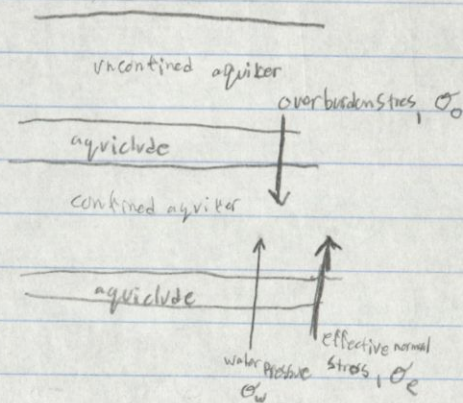 unconfined aquifer
overburden stress, σo
aquiclude
confined aquifer
aquiclude
water pressure
σw
effective normal
stress, σe